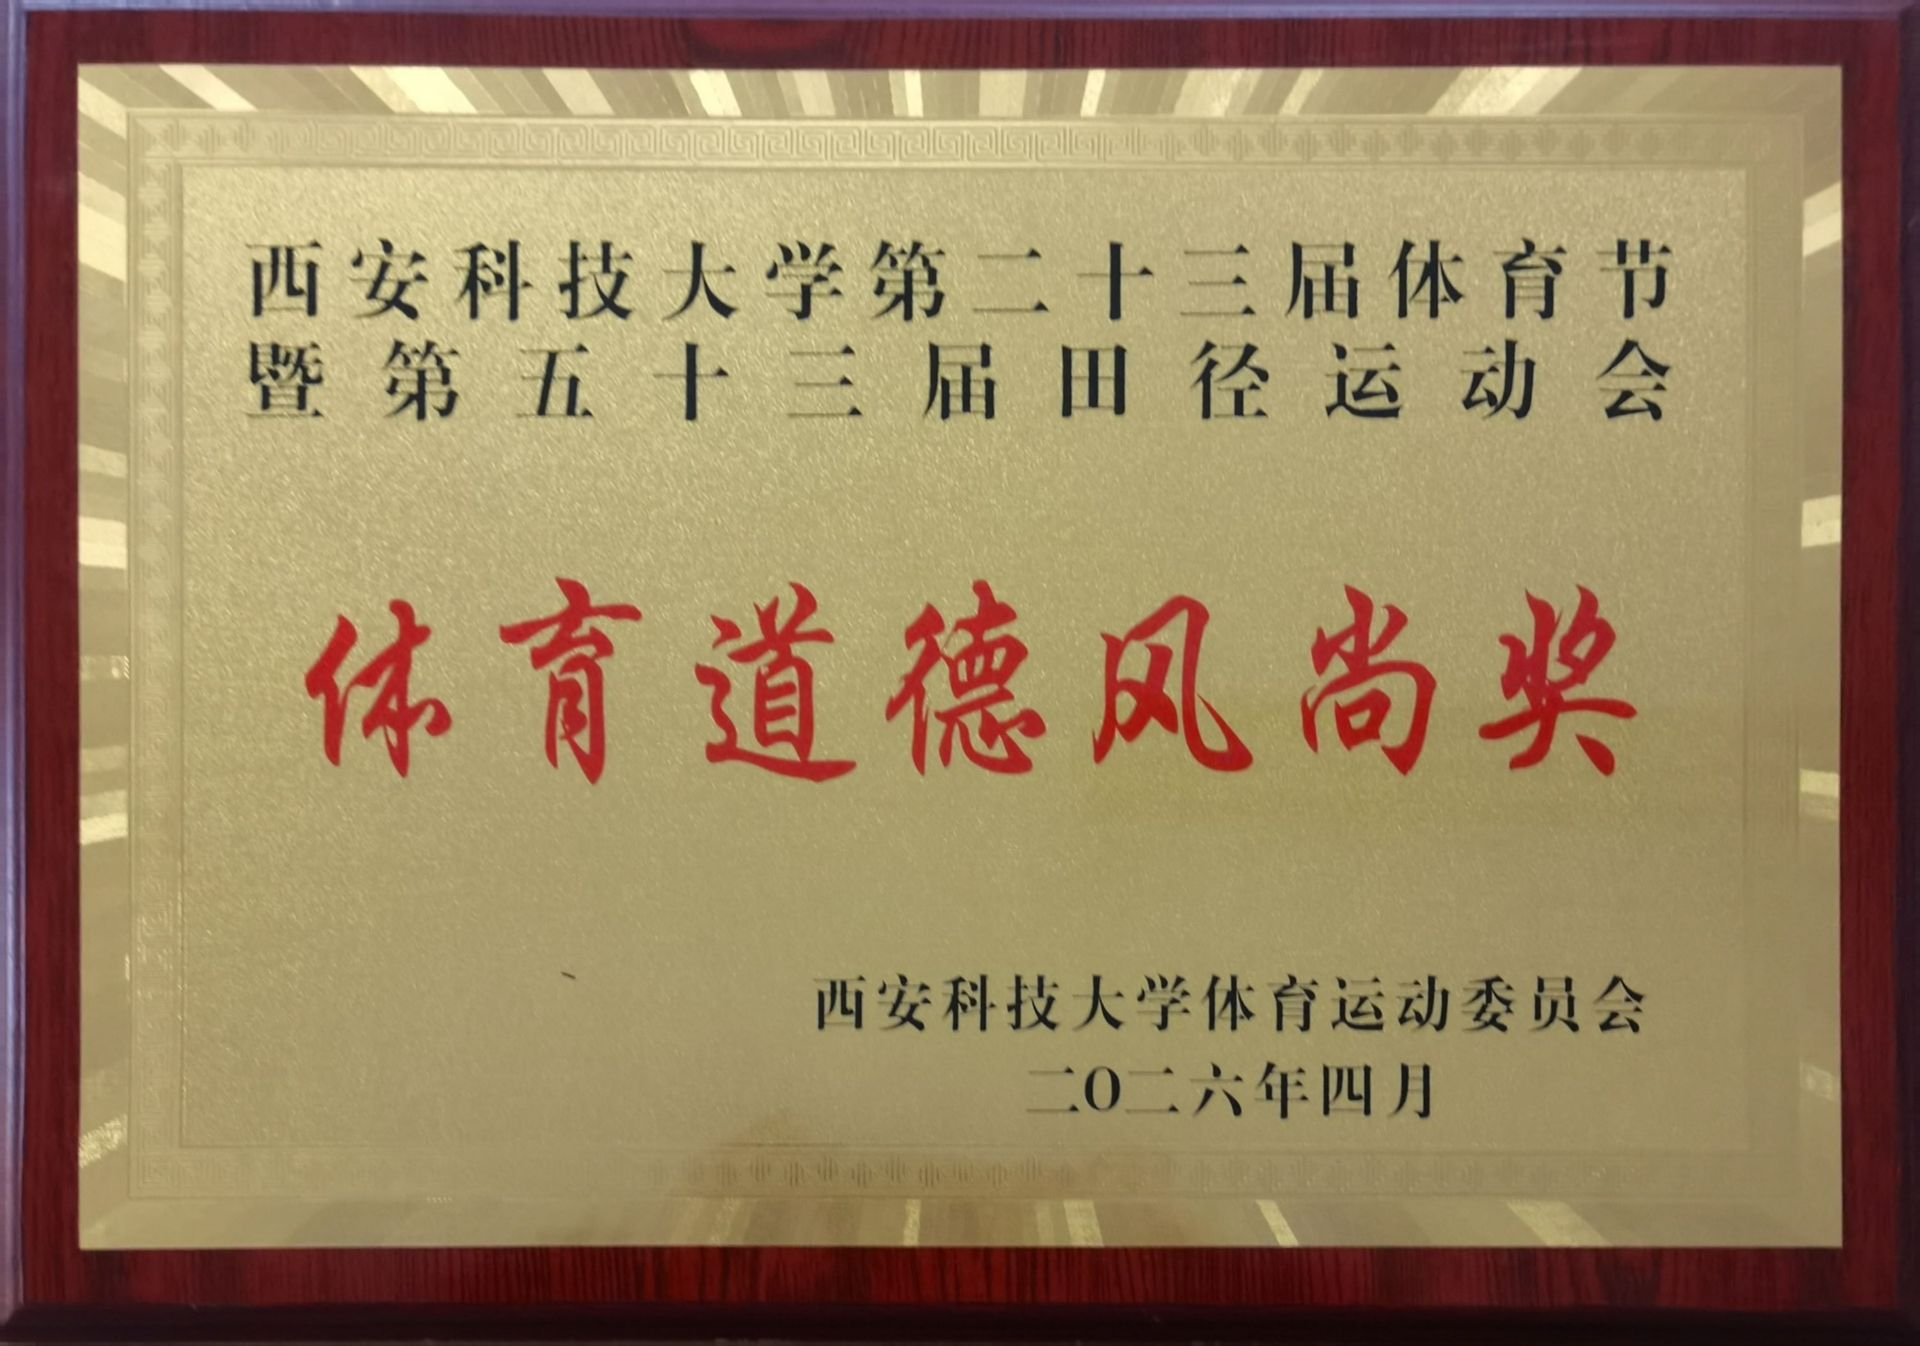 西安科技大学第二十三届体育节
暨第五十三届田径运动会
体育道德风尚奖
西安科技大学体育运动委员会
二O二六年四月